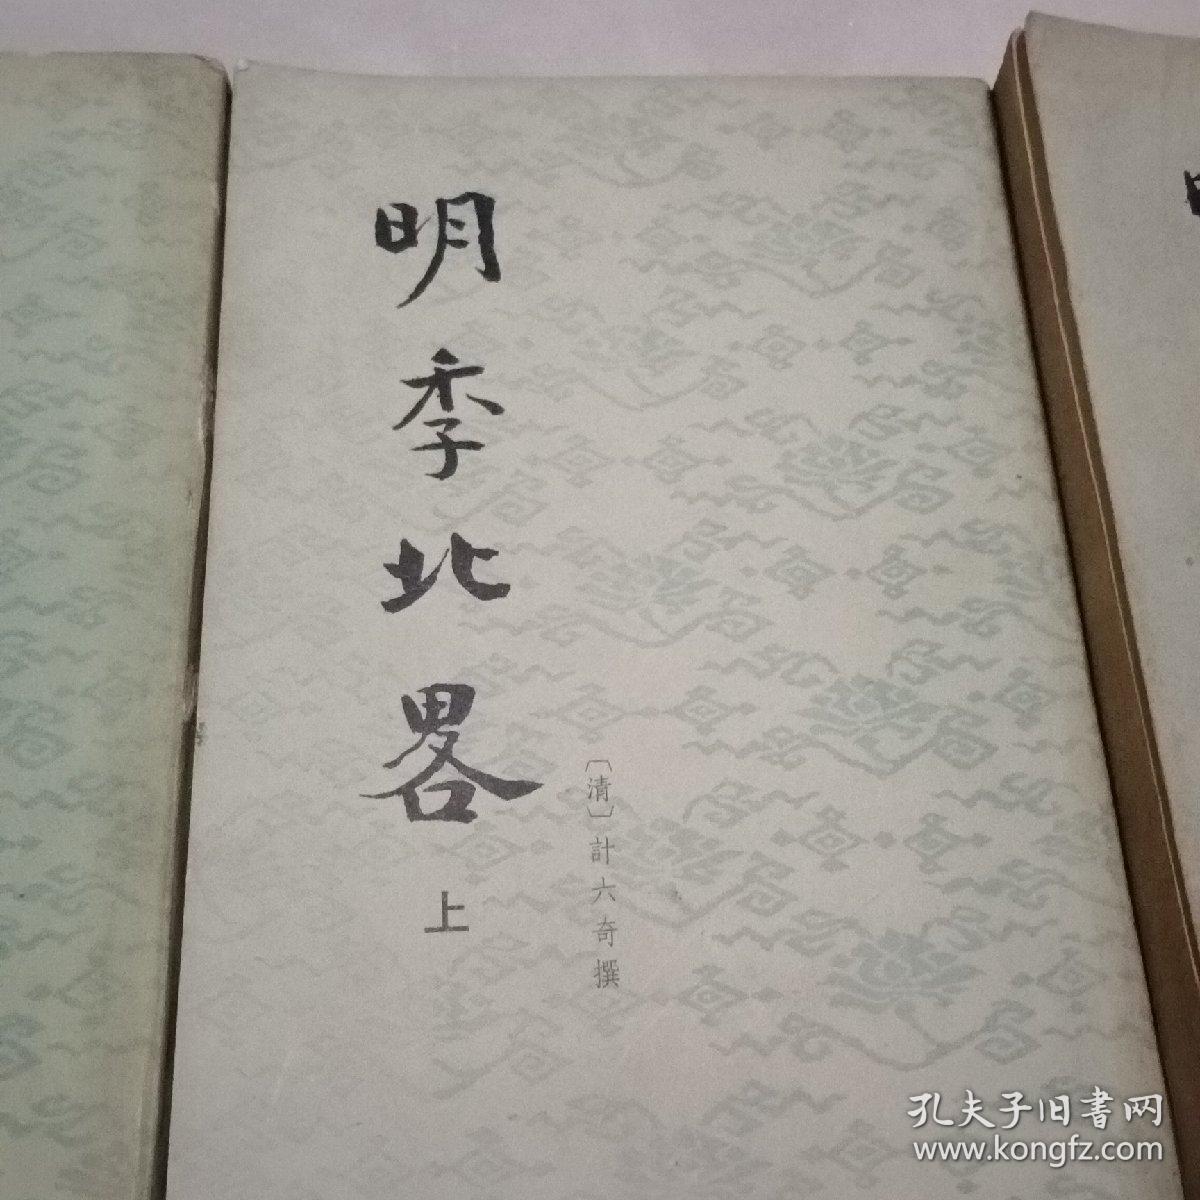 明季北畧
上
〔清〕計六奇撰
孔夫子旧書网
www.kongfz.com